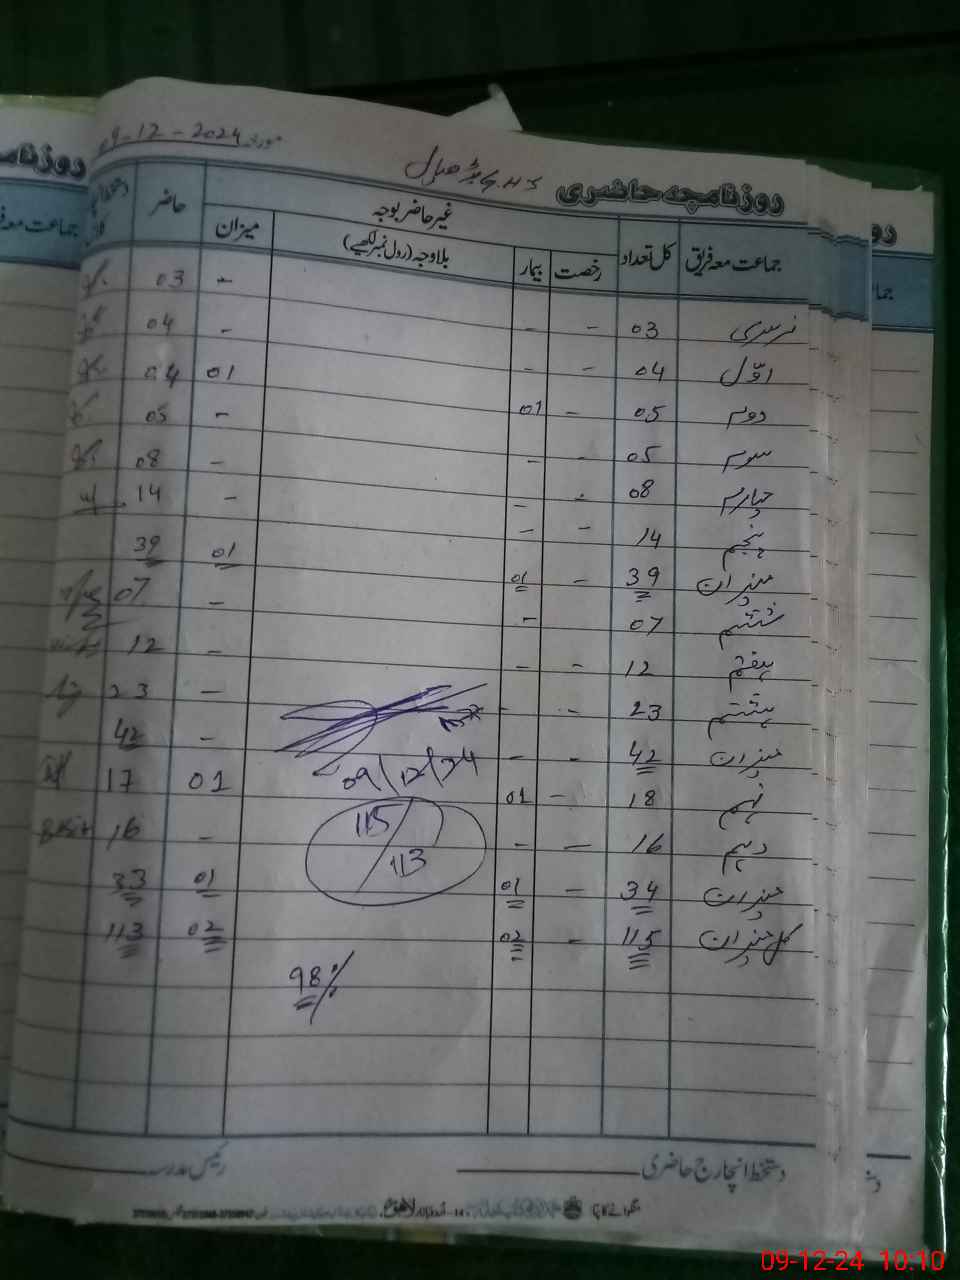 مورخہ 09-12-2024
روزنامچہ حاضری
جماعت معہ فریق کل تعداد غیر حاضر بوجہ میزان حاضر
رخصت بیمار بلاوجہ (رول نمبر لکھیے)
نرسری 03 - - - 03
اوّل 04 - - - 04
دوم 05 - 01 01 04
سوم 05 - - - 05
چہارم 08 - - - 08
پنجم 14 - - - 14
میزان 39 - 01 01 39
ششم 07 - - 07
ہفتم 12 - - - 12
ہشتم 23 - - - 23
میزان 42 - - - 42
09/12/24
نہم 18 - 01 01 17
115/113
دہم 16 - - - 16
میزان 34 - 01 01 33
کل میزان 115 - 02 02 113
98%
دستخط انچارج حاضری رئیس مدرسہ
09-12-24 10:10